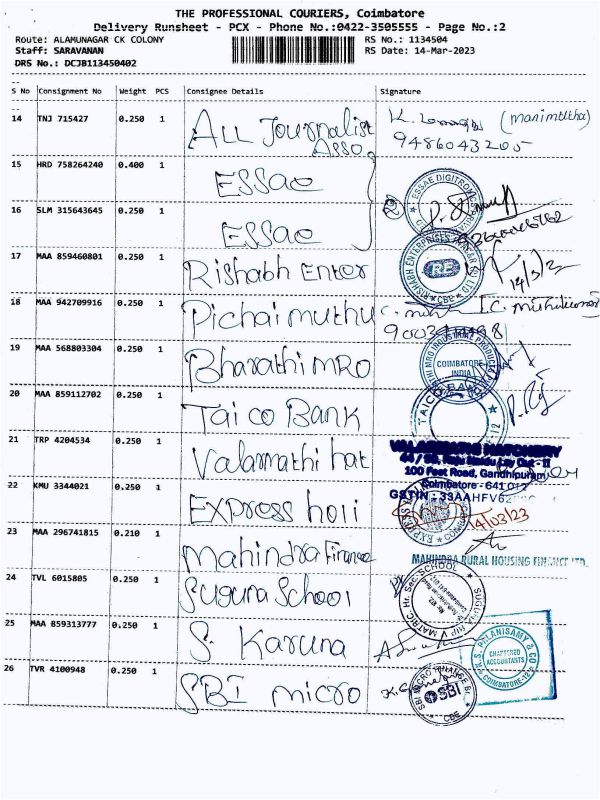 THE PROFESSIONAL COURIERS, Coimbatore
Delivery Runsheet - PCX - Phone No.:0422-3505555 - Page No.:2
Route: ALAMUNAGAR CK COLONY
RS No.: 1134504
Staff: SARAVANAN
RS Date: 14-Mar-2023
DRS No.: DCJB113450402
S No Consignment No Weight PCS Consignee Details Signature
14 TNJ 715427 0.250 1 ALL Journalist Asso (manimuthu)
9486043205
15 HRD 758264240 0.400 1 ESSAE
16 SLM 315643645 0.250 1 ESSAE
17 MAA 859460801 0.250 1 Rishabh Enter
18 MAA 942709916 0.250 1 Pichai muthu
19 MAA 568803304 0.250 1 Bharathi MRO
COIMBATORE
INDIA
20 MAA 859112702 0.250 1 Taico Bank
TAICO BANK
21 TRP 4204534 0.250 1 Valarmathi hat
VALARMATHI HATCHERY
100 Feet Road, Gandhipuram
Coimbatore - 641 012
GSTIN : 33AAHFV62
22 KMU 3344021 0.250 1 Express holi
14/03/23
23 MAA 296741815 0.210 1 Mahindra Finance
MAHINDRA RURAL HOUSING FINANCE LTD.
24 TVL 6015805 0.250 1 Suguna School
25 MAA 859313777 0.250 1 S. Karuna
PALANISAMY & CO
CHARTERED
ACCOUNTANTS
COIMBATORE-12
26 TVR 4100948 0.250 1 SBI micro
SBI
CBE